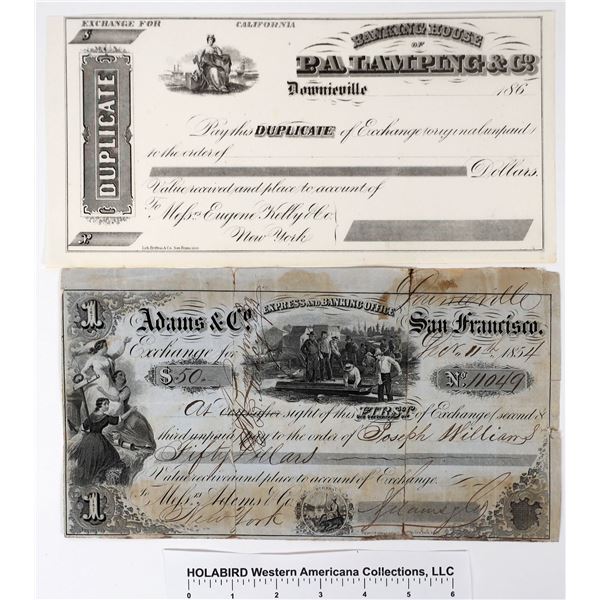 EXCHANGE FOR CALIFORNIA
$
BANKING HOUSE
OF
P.A. LAMPING & Co.
Downieville 186
DUPLICATE
Pay this DUPLICATE of Exchange (original unpaid)
to the order of
Dollars.
Value received and place to account of
To Messrs Eugene Kelly & Co
New York
Lith. Britton & Co. San Francisco
EXPRESS AND BANKING OFFICE
1
Adams & Co. San Francisco.
Exchange for Nov 11th 1854
$50. No. 11049
At sight of this FIRST of Exchange (second &
third unpaid) Pay to the order of Joseph Williams
Fifty Dollars
Value received and place to account of Exchange.
To Messrs Adams & Co.
New York Adams & Co
1
HOLABIRD Western Americana Collections, LLC
0 1 2 3 4 5 6